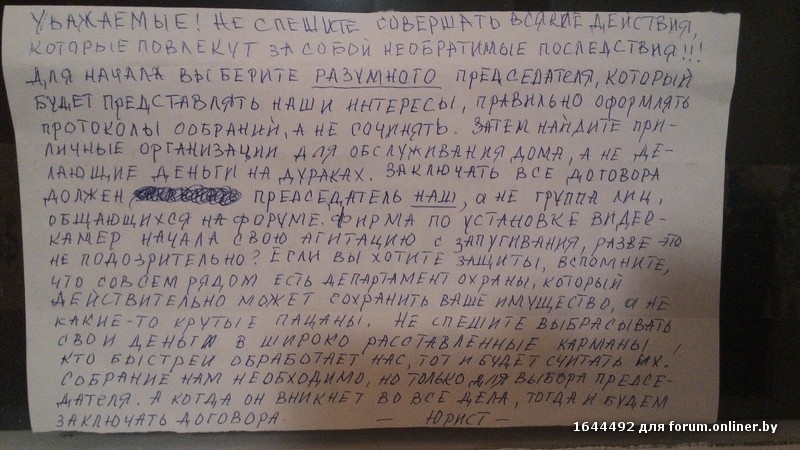 УВАЖАЕМЫЕ! НЕ СПЕШИТЕ СОВЕРШАТЬ ВСЯКИЕ ДЕЙСТВИЯ,
КОТОРЫЕ ПОВЛЕКУТ ЗА СОБОЙ НЕОБРАТИМЫЕ ПОСЛЕДСТВИЯ!!!
ДЛЯ НАЧАЛА ВЫБЕРИТЕ РАЗУМНОГО ПРЕДСЕДАТЕЛЯ, КОТОРЫЙ
БУДЕТ ПРЕДСТАВЛЯТЬ НАШИ ИНТЕРЕСЫ, ПРАВИЛЬНО ОФОРМЛЯТЬ
ПРОТОКОЛЫ СОБРАНИЙ, А НЕ СОЧИНЯТЬ. ЗАТЕМ НАЙДИТЕ ПРИ-
ЛИЧНЫЕ ОРГАНИЗАЦИИ ДЛЯ ОБСЛУЖИВАНИЯ ДОМА, А НЕ ДЕ-
ЛАЮЩИЕ ДЕНЬГИ НА ДУРАКАХ. ЗАКЛЮЧАТЬ ВСЕ ДОГОВОРА
ДОЛЖЕН ПРЕДСЕДАТЕЛЬ НАШ, А НЕ ГРУППА ЛИЦ,
ОБЩАЮЩИХСЯ НА ФОРУМЕ. ФИРМА ПО УСТАНОВКЕ ВИДЕО-
КАМЕР НАЧАЛА СВОЮ АГИТАЦИЮ С ЗАПУГИВАНИЯ, РАЗВЕ ЭТО
НЕ ПОДОЗРИТЕЛЬНО? ЕСЛИ ВЫ ХОТИТЕ ЗАЩИТЫ, ВСПОМНИТЕ,
ЧТО СОВСЕМ РЯДОМ ЕСТЬ ДЕПАРТАМЕНТ ОХРАНЫ, КОТОРЫЙ
ДЕЙСТВИТЕЛЬНО МОЖЕТ СОХРАНИТЬ ВАШЕ ИМУЩЕСТВО, А НЕ
КАКИЕ-ТО КРУТЫЕ ПАЦАНЫ. НЕ СПЕШИТЕ ВЫБРАСЫВАТЬ
СВОИ ДЕНЬГИ В ШИРОКО РАССТАВЛЕННЫЕ КАРМАНЫ!
КТО БЫСТРЕЙ ОБРАБОТАЕТ НАС, ТОТ И БУДЕТ СЧИТАТЬ ИХ.
СОБРАНИЕ НАМ НЕОБХОДИМО, НО ТОЛЬКО ДЛЯ ВЫБОРА ПРЕДСЕ-
ДАТЕЛЯ. А КОГДА ОН ВНИКНЕТ ВО ВСЕ ДЕЛА, ТОГДА И БУДЕМ
ЗАКЛЮЧАТЬ ДОГОВОРА. — ЮРИСТ —
1644492 для forum.onliner.by